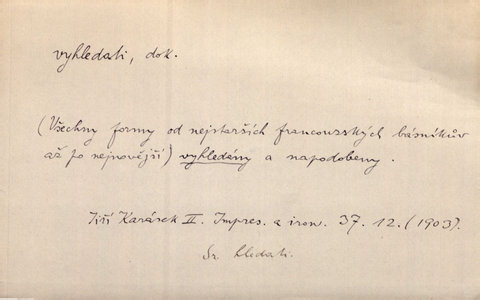 vyhledati, dok.
(Všechny formy od nejstarších francouzských básníkův
až po nejnovější) vyhledány a napodobeny.
Jiří Karásek II. Impres. a iron. 37. 12. (1903).
Sr. hledati.